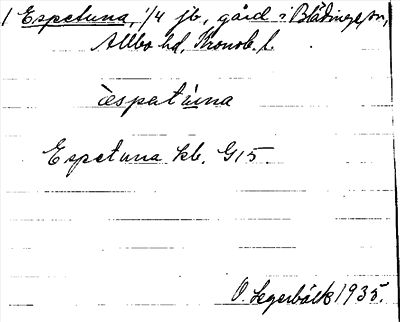 1 Espetuna, 1/4 jb, gård i Blädinge sn,
Allbo hd, Kronob. l.
èspatúna
Espetuna kb. G15.
O. Legerbäck 1935.